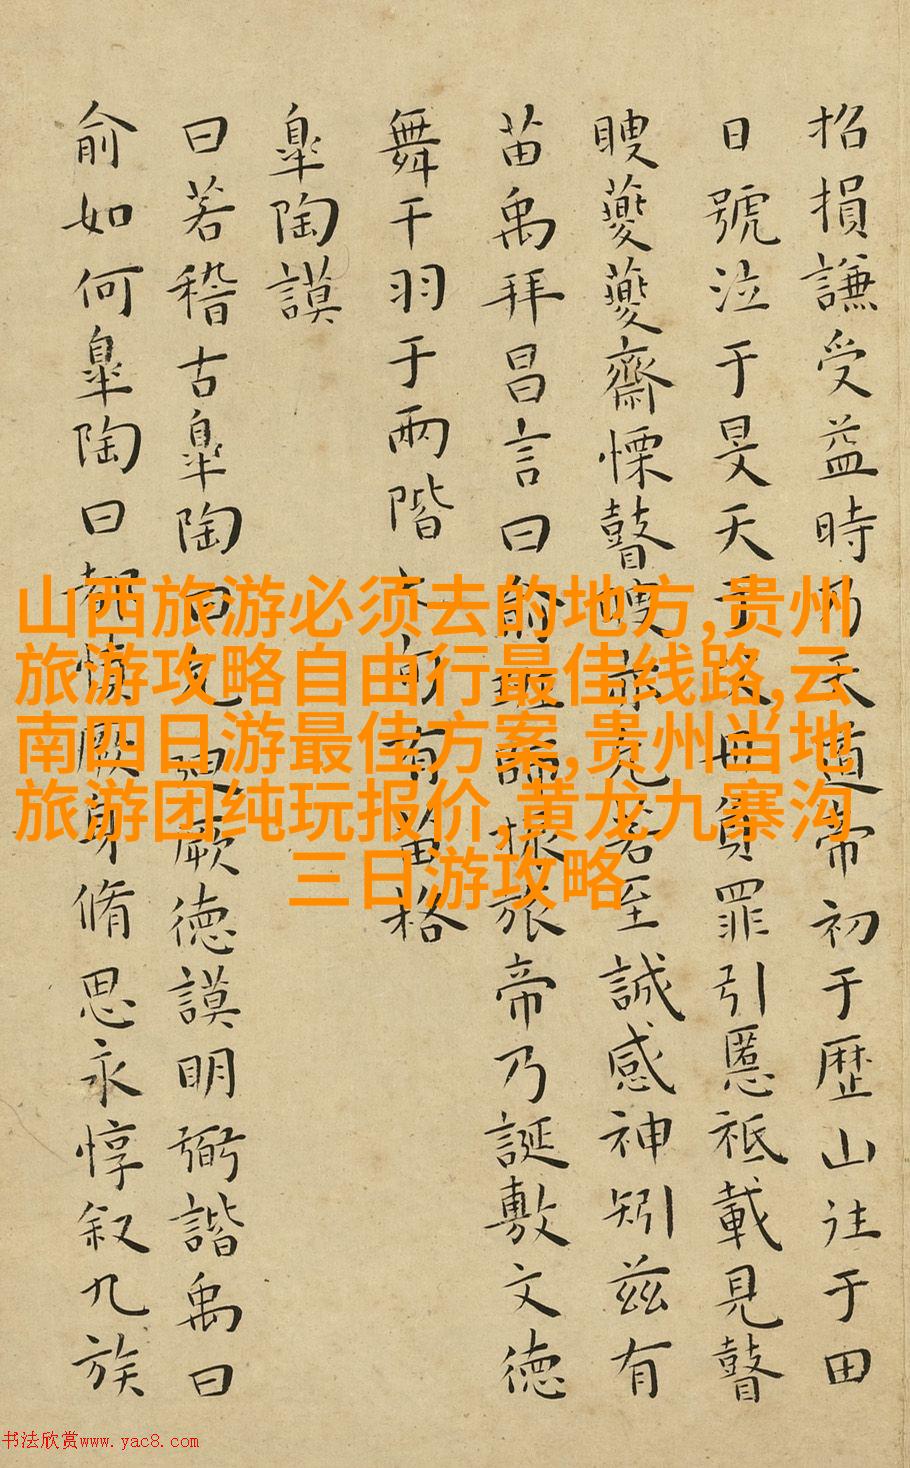 招損謙受益時乃天道帝初于歷山往于田
日號泣于旻天于父母負罪引慝祗載見瞽
瞍夔夔齋慄瞽瞍亦允若至諴感神矧茲有
苗禹拜昌言曰俞班師振旅帝乃誕敷文德
舞干羽于兩階七旬有苗格
皋陶謨
曰若稽古皋陶曰允迪厥德謨明弼諧禹曰
俞如何皋陶曰都慎厥身脩思永惇叙九族
山西旅游必须去的地方,贵州
旅游攻略自由行最佳线路,云
南四日游最佳方案,贵州当地
旅游团纯玩报价,黄龙九寨沟
三日游攻略
书法欣赏www.yac8.com